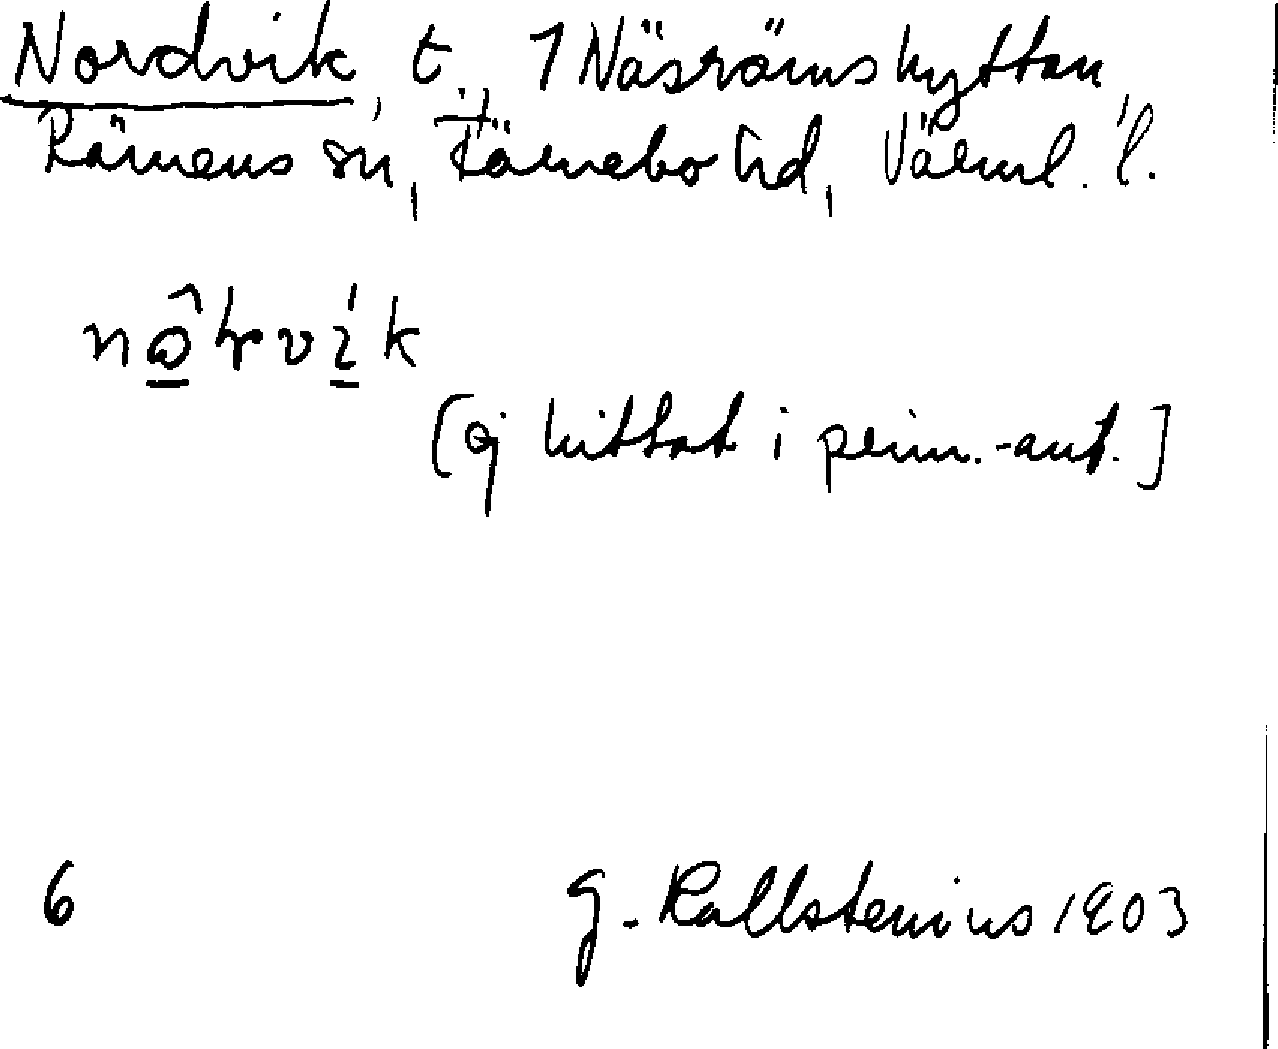 Nordvik, t. 1 Näsrämshyttan,
Rämens sn, Färnebo hd, Värml. l.
nô̱rvi̱k
[ej hittat i prim.-ant.]
6 G. Kallstenius 1903